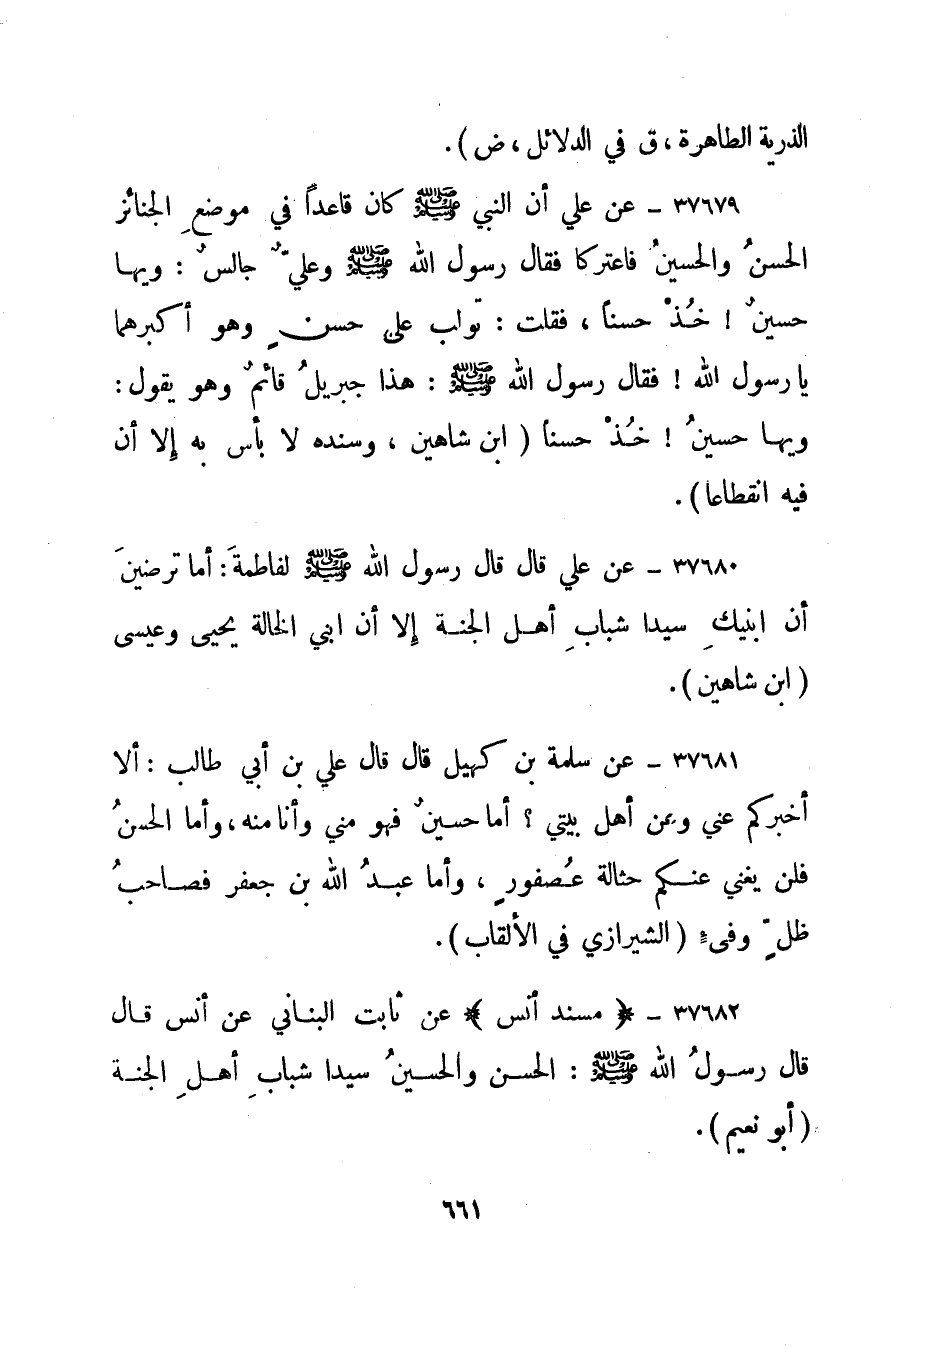 الذرية الطاهرة ، ق في الدلائل ، ض ) .
٣٧٦٧٩ ـ عن علي أن النبي ﷺ كان قاعداً في موضعِ الجنائز
الحسنُ والحسينُ فاعتركا فقال رسول الله ﷺ وعليٌّ جالسٌ : ويها
حسينٌ ! خُذْ حسناً ، فقلت : تؤلب على حسنٍ وهو أكبرهما
يا رسول الله ! فقال رسول الله ﷺ : هذا جبريلُ قائمٌ وهو يقول :
ويها حسينُ ! خُذْ حسناً ( ابن شاهين ، وسنده لا بأس به إلا أن
فيه انقطاعا ) .
٣٧٦٨٠ ـ عن علي قال قال رسول الله ﷺ لفاطمةَ : أما ترضينَ
أن ابنيكِ سيدا شبابِ أهل الجنة إلا أن ابني الخالة يحيى وعيسى
( ابن شاهين ) .
٣٧٦٨١ ـ عن سلمة بن كهيل قال قال علي بن أبي طالب : ألا
أخبركم عني وعن أهل بيتي ؟ أما حسينٌ فهو مني وأنا منه ، وأما الحسنُ
فلن يغني عنكم حثالة عُصفورٍ ، وأما عبدُ الله بن جعفر فصاحبُ
ظلٍّ وفىءٍ ( الشيرازي في الألقاب ) .
٣٧٦٨٢ ـ ﴿ مسند أنس ﴾ عن ثابت البناني عن أنس قال
قال رسولُ الله ﷺ : الحسن والحسينُ سيدا شبابِ أهلِ الجنة
( أبو نعيم ) .
٦٦١